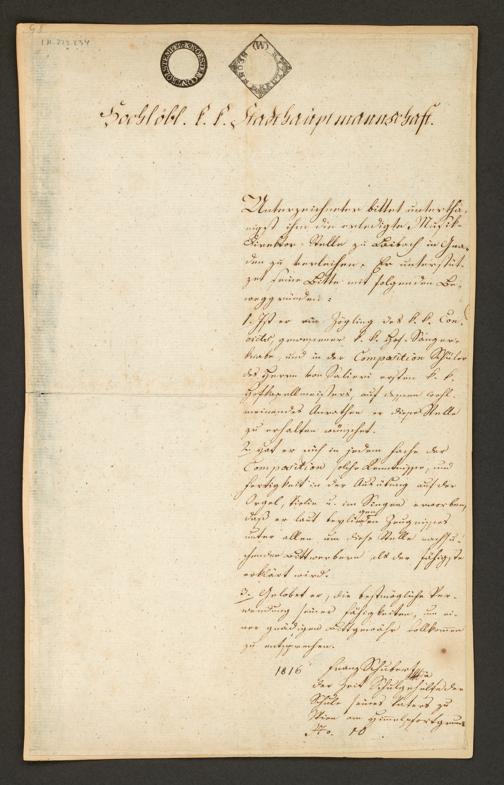 Hochlöbl. k. k. Stadthauptmannschaft.
Unterzeichneter bittet unterthä-
nigst ihm die erledigte Musik-
Direktor-Stelle zu Laibach in Gna-
den zu verleihen. Er unterstüt-
zet seine Bitte mit folgenden Be-
weggründen:
1. Ist er ein Zögling des k. k. Con-
victes, gewesener k. k. Hof-Sänger-
knabe, und in der Composition Schüler
des Herrn von Salieri ersten k. k.
Hofkapellmeisters, auf dessen wohl-
meinendes Anrathen er diese Stelle
zu erhalten wünschet.
2. Hat er sich in jedem Fache der
Composition solche Kenntnisse, und
Fertigkeit in der Ausübung auf der
Orgel, Violin u. im Singen erworben,
daß er laut beyliegenden Zeugnisses
unter allen um diese Stelle nachsu-
chenden Bittwerbern als der fähigste
erklärt wird.
3. Gelobet er, die bestmögliche Ver-
wendung seiner Fähigkeiten, um ei-
ner gnädigen Bittgewähr vollkommen
zu entsprechen.
1816 Franz Schubert
der Zeit Schulgehülfe der
Schule seines Vaters zu
Wien am Himmelpfortgrund
No. 10